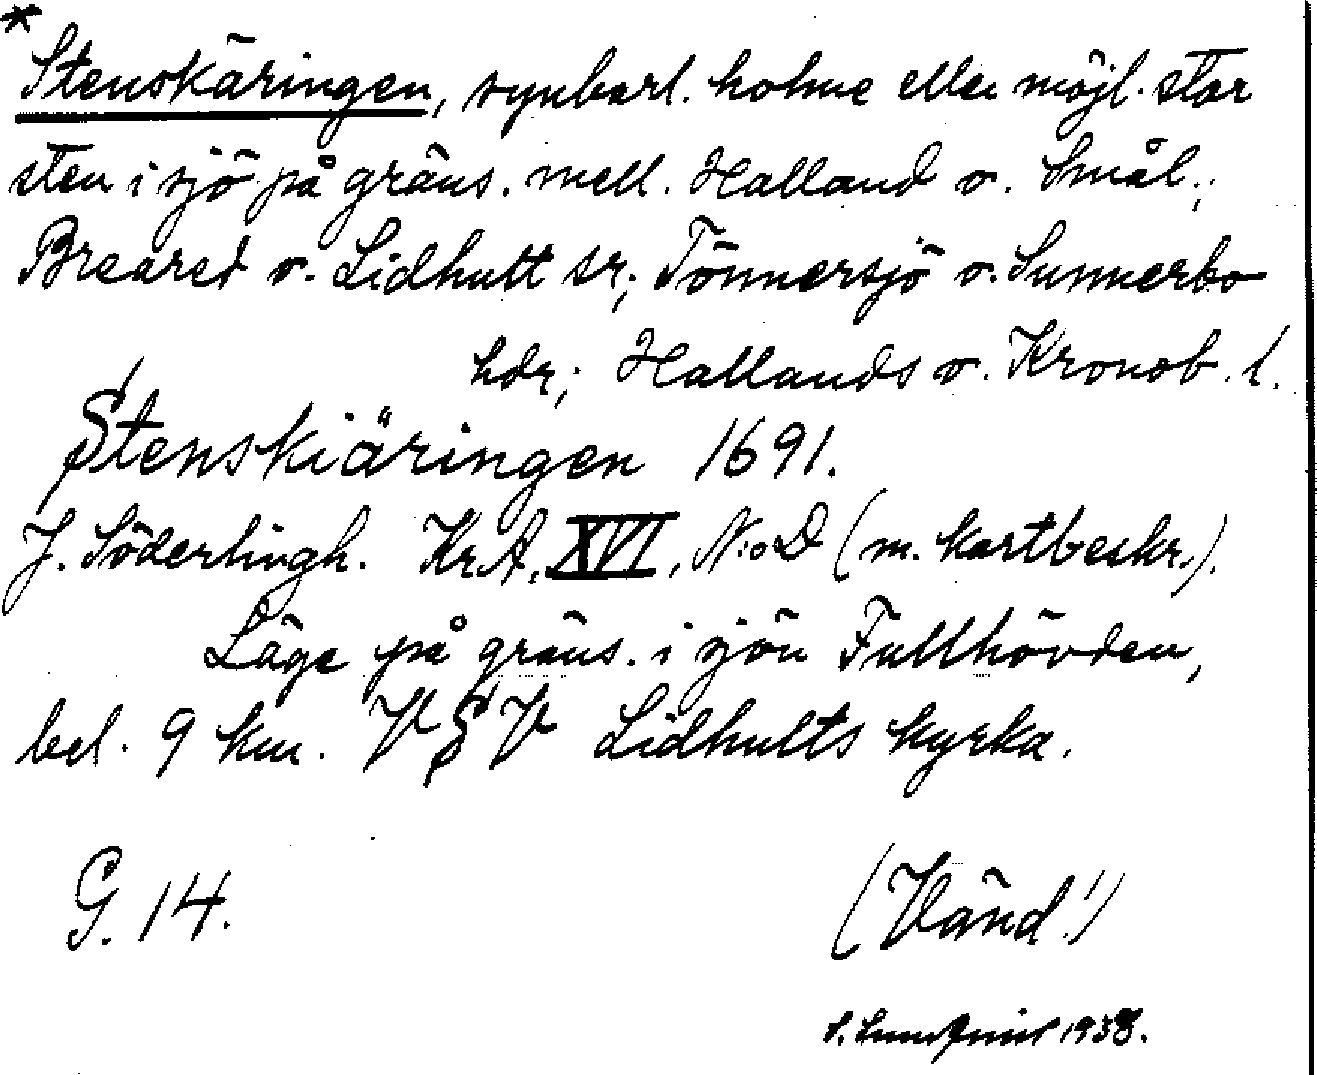 *
Stenskäringen, synbarl. holme eller möjl. stor
sten i sjö på gräns. mell. Halland o. Smål.;
Breared o. Lidhult sr; Tönnersjö o. Sunnerbo
hdr; Hallands o. Kronob. l.
Stenskiäringen 1691.
J. Söderlingh. KrA, XVI, N:o D (m. kartbeskr.).
Läge på gräns. i sjön Fullhövden,
bel. 9 km. VSV Lidhults kyrka.
G. 14.
(Vänd!)
1938.